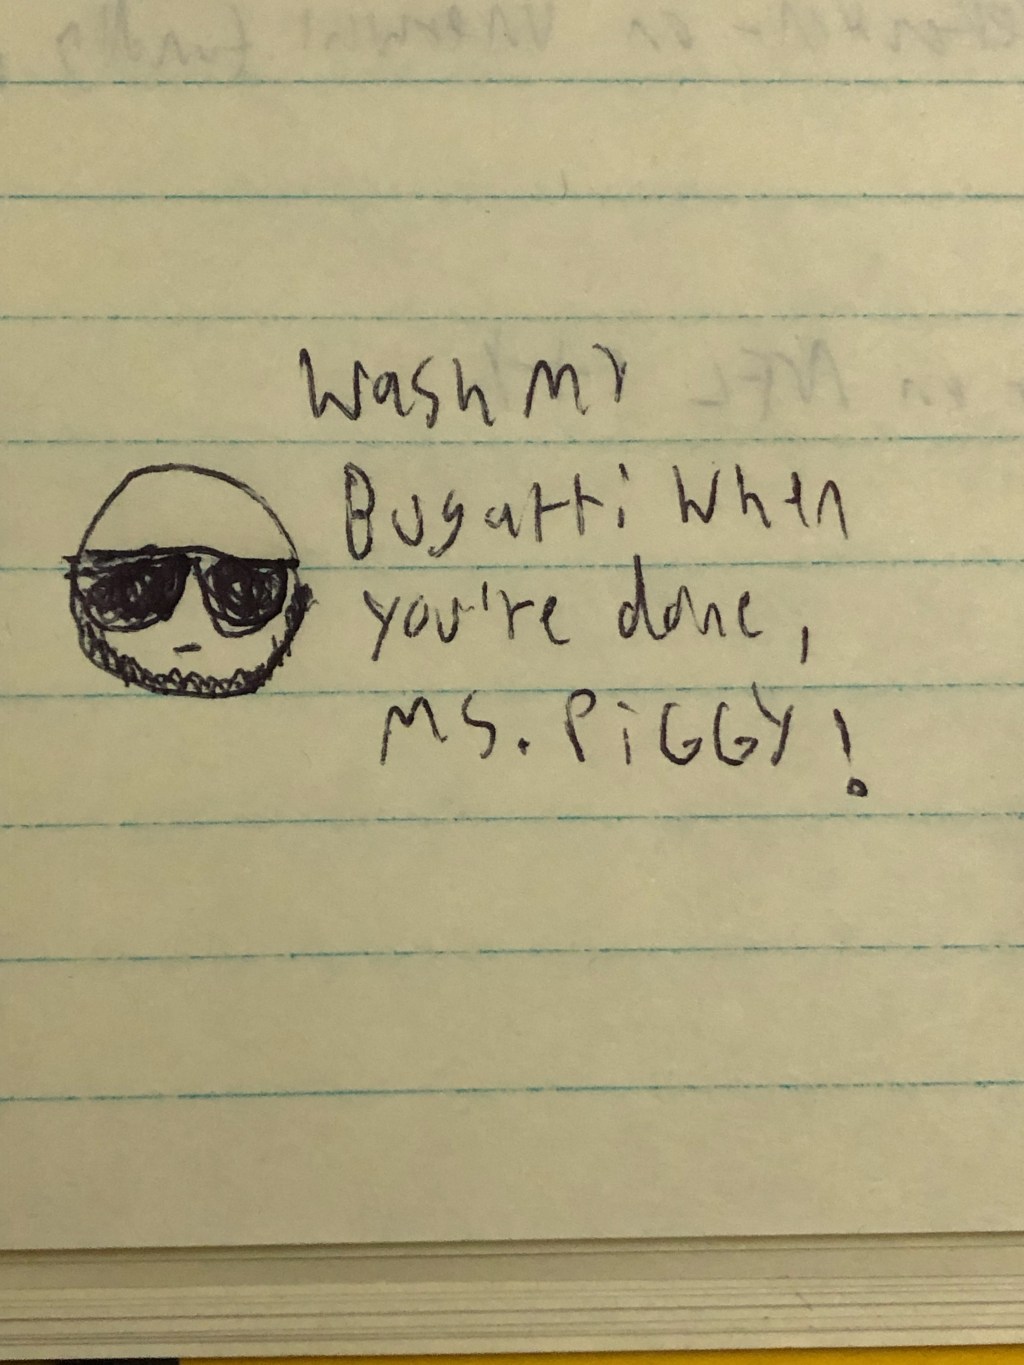 Wash my
Bugatti when
you're done,
MS. PiGGY!